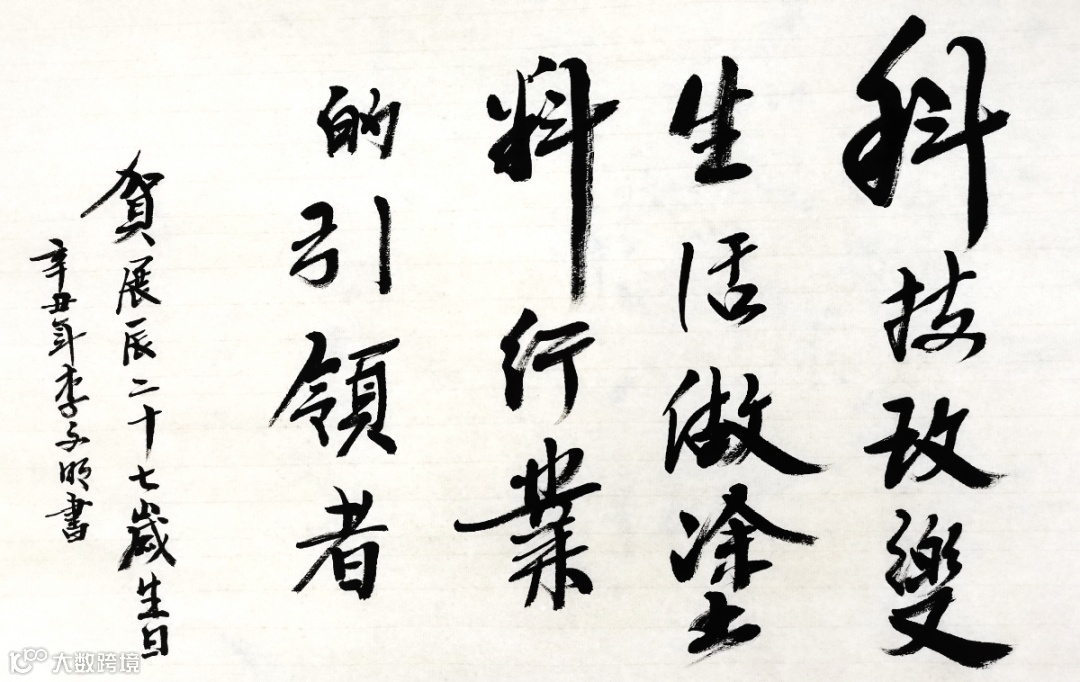 科技改變
生活做塗
料行業
的引領者
賀展辰二十七歲生日
辛丑年李子明書
大数跨境